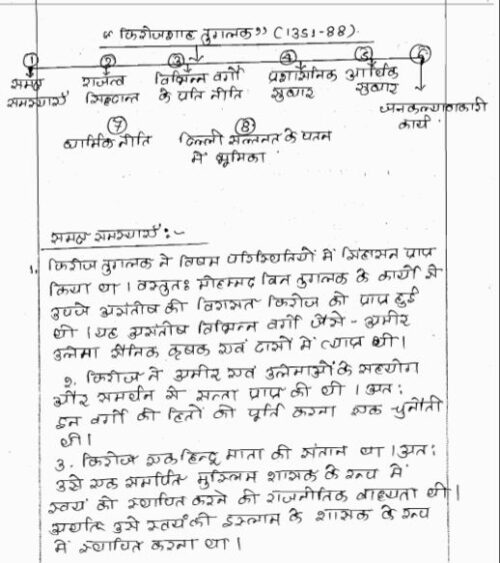 “फिरोजशाह तुगलक” (1351-88)
① ② ③ ④ ⑤ ⑥
समक्ष राजत्व विभिन्न वर्गों प्रशासनिक आर्थिक
समस्याएँ सिद्धान्त के प्रति नीति सुधार सुधार
जनकल्याणकारी
कार्य
⑦ ⑧
धार्मिक नीति दिल्ली सल्तनत के पतन
में भूमिका
समक्ष समस्याएँ :-
1. फिरोज तुगलक ने विषम परिस्थितियों में सिंहासन प्राप्त
किया था। वस्तुतः मोहम्मद बिन तुगलक के कार्यों से
उपजे असंतोष की विरासत फिरोज को प्राप्त हुई
थी। यह असंतोष विभिन्न वर्गों जैसे - अमीर
उलेमा सैनिक कृषक एवं दासों में व्याप्त थी।
2. फिरोज ने अमीर एवं उलेमाओं के सहयोग
और समर्थन से सत्ता प्राप्त की थी। अतः
इन वर्गों की हितों की पूर्ति करना एक चुनौती
थी।
3. फिरोज एक हिन्दू माता की संतान था। अतः
उसे एक समर्पित मुस्लिम शासक के रूप में
स्वयं को स्थापित करने की राजनीतिक बाध्यता थी।
अर्थात उसे स्वयं की इस्लाम के शासक के रूप
में स्थापित करना था।